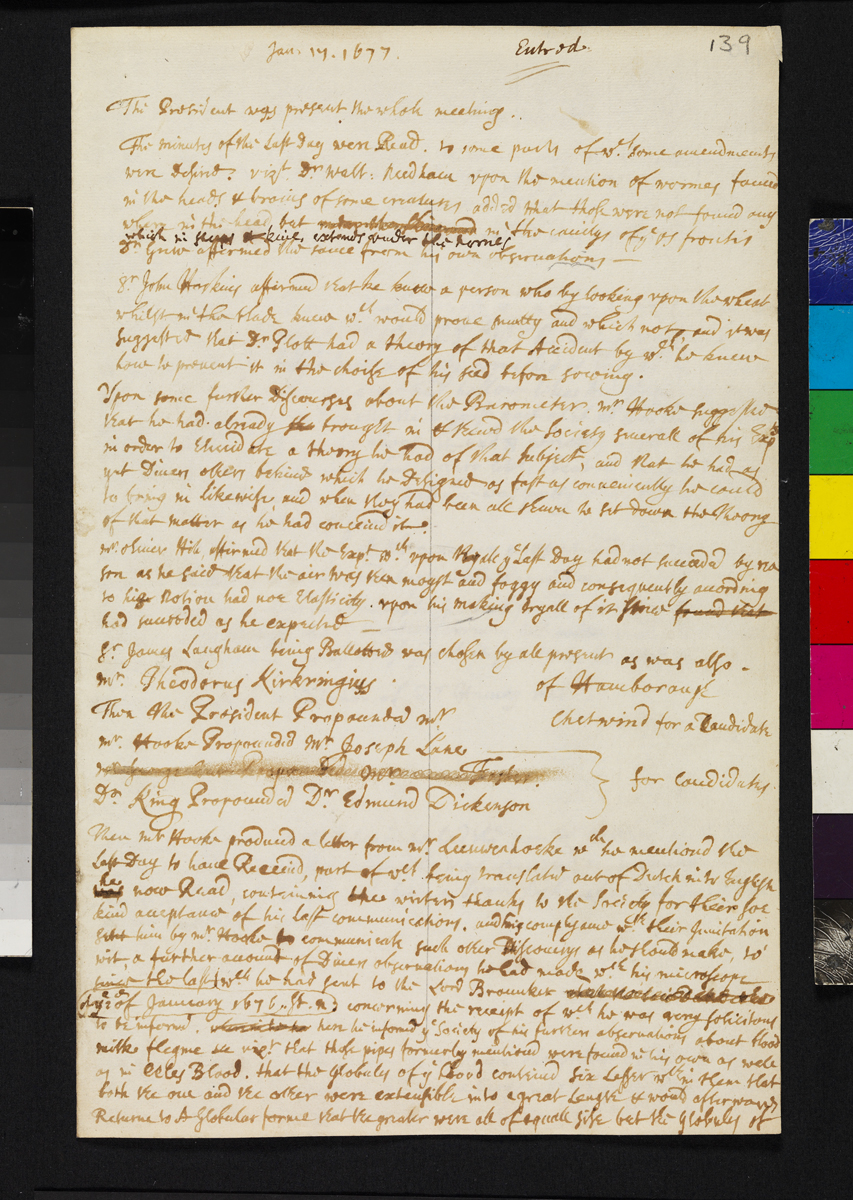 Jan: 17. 1677. Entred. 139
The President was present the whole meeting..
The minutes of the Last day were Read. to some parts of wch. some amendments
were Desired: vizt. Dr Walt: Needham upon the mention of wormes found
in the heads & brains of some creatures added that those were not found any
where in the head but in the cavitys of ye os frontis
which in sheep & kine, extends under the hornes
Dr. Grew affirmed the same from his own observations —
Sr. John Hoskins affirmed that he knew a person who by looking upon the wheat
whilst in the blade knew wch. would prove smutty and which not, and it was
suggested that Dr. Plott had a theory of that Accident by wch. he knew
how to prevent it in the choise of his seed before sowing.
Upon some further Discourses about the Barometer. Mr. Hooke suggested
that he had already brought in & shewd the Society severall of his Expts
in order to Elucidate a theory he had of that Subject, and that he had as
yet Divers others behind which he Designed as fast as conveniently he could
to bring in likewise, and when they had been all shewn to set down the Theory
of that matter as he had conceived it.
Mr. Oliver Hill, affirmed that the Expt. wch upon tryall ye Last Day had not succeded by rea
son as he said that the air was then moyst and foggy and consequently according
to his Notion had noe Elasticity. upon his making tryall of it since found that
had succeeded as he expected —
Sr. James Langham being Ballotted was chosen by all present as was also -
Mr. Theodorus Kirkringius. of Hamborough
Then the President Propounded Mr Chetwind for a Candidate
Mr. Hooke Propounded Mr. Joseph Lane
for Candidates.
Dr. King Propounded Dr. Edmund Dickenson
Then Mr Hooke produced a letter from Mr. Leeuwenhoeke wch he mentiond the
Last Day to have Receivd, part of wch. being translated out of Dutch into English
was now Read, containing the writers thanks to the Society for their soe
kind acceptance of his last communications. and his complyance wth their Invitation
sent him by Mr. Hooke to communicate such other Discoverys as he should make, to
wit a further account of Divers observations he had made wth his microscope
since the last wch he had sent to the Lord Brouncker
of January 1678. St. n. concerning the receipt of wch he was very solicitous
to be informd. here he informd ye Society of his further observations about blood
milk flegme &c vizt. that those pipes formerly mentioned were found in his own as well
as in Eeles Blood. that the Globules of ye Blood contained six Lesser wth in them that
both the one and the other were extensible into a great Length & would afterwards
Returne to A Globular forme that the greater were all of equall size but the Globules of